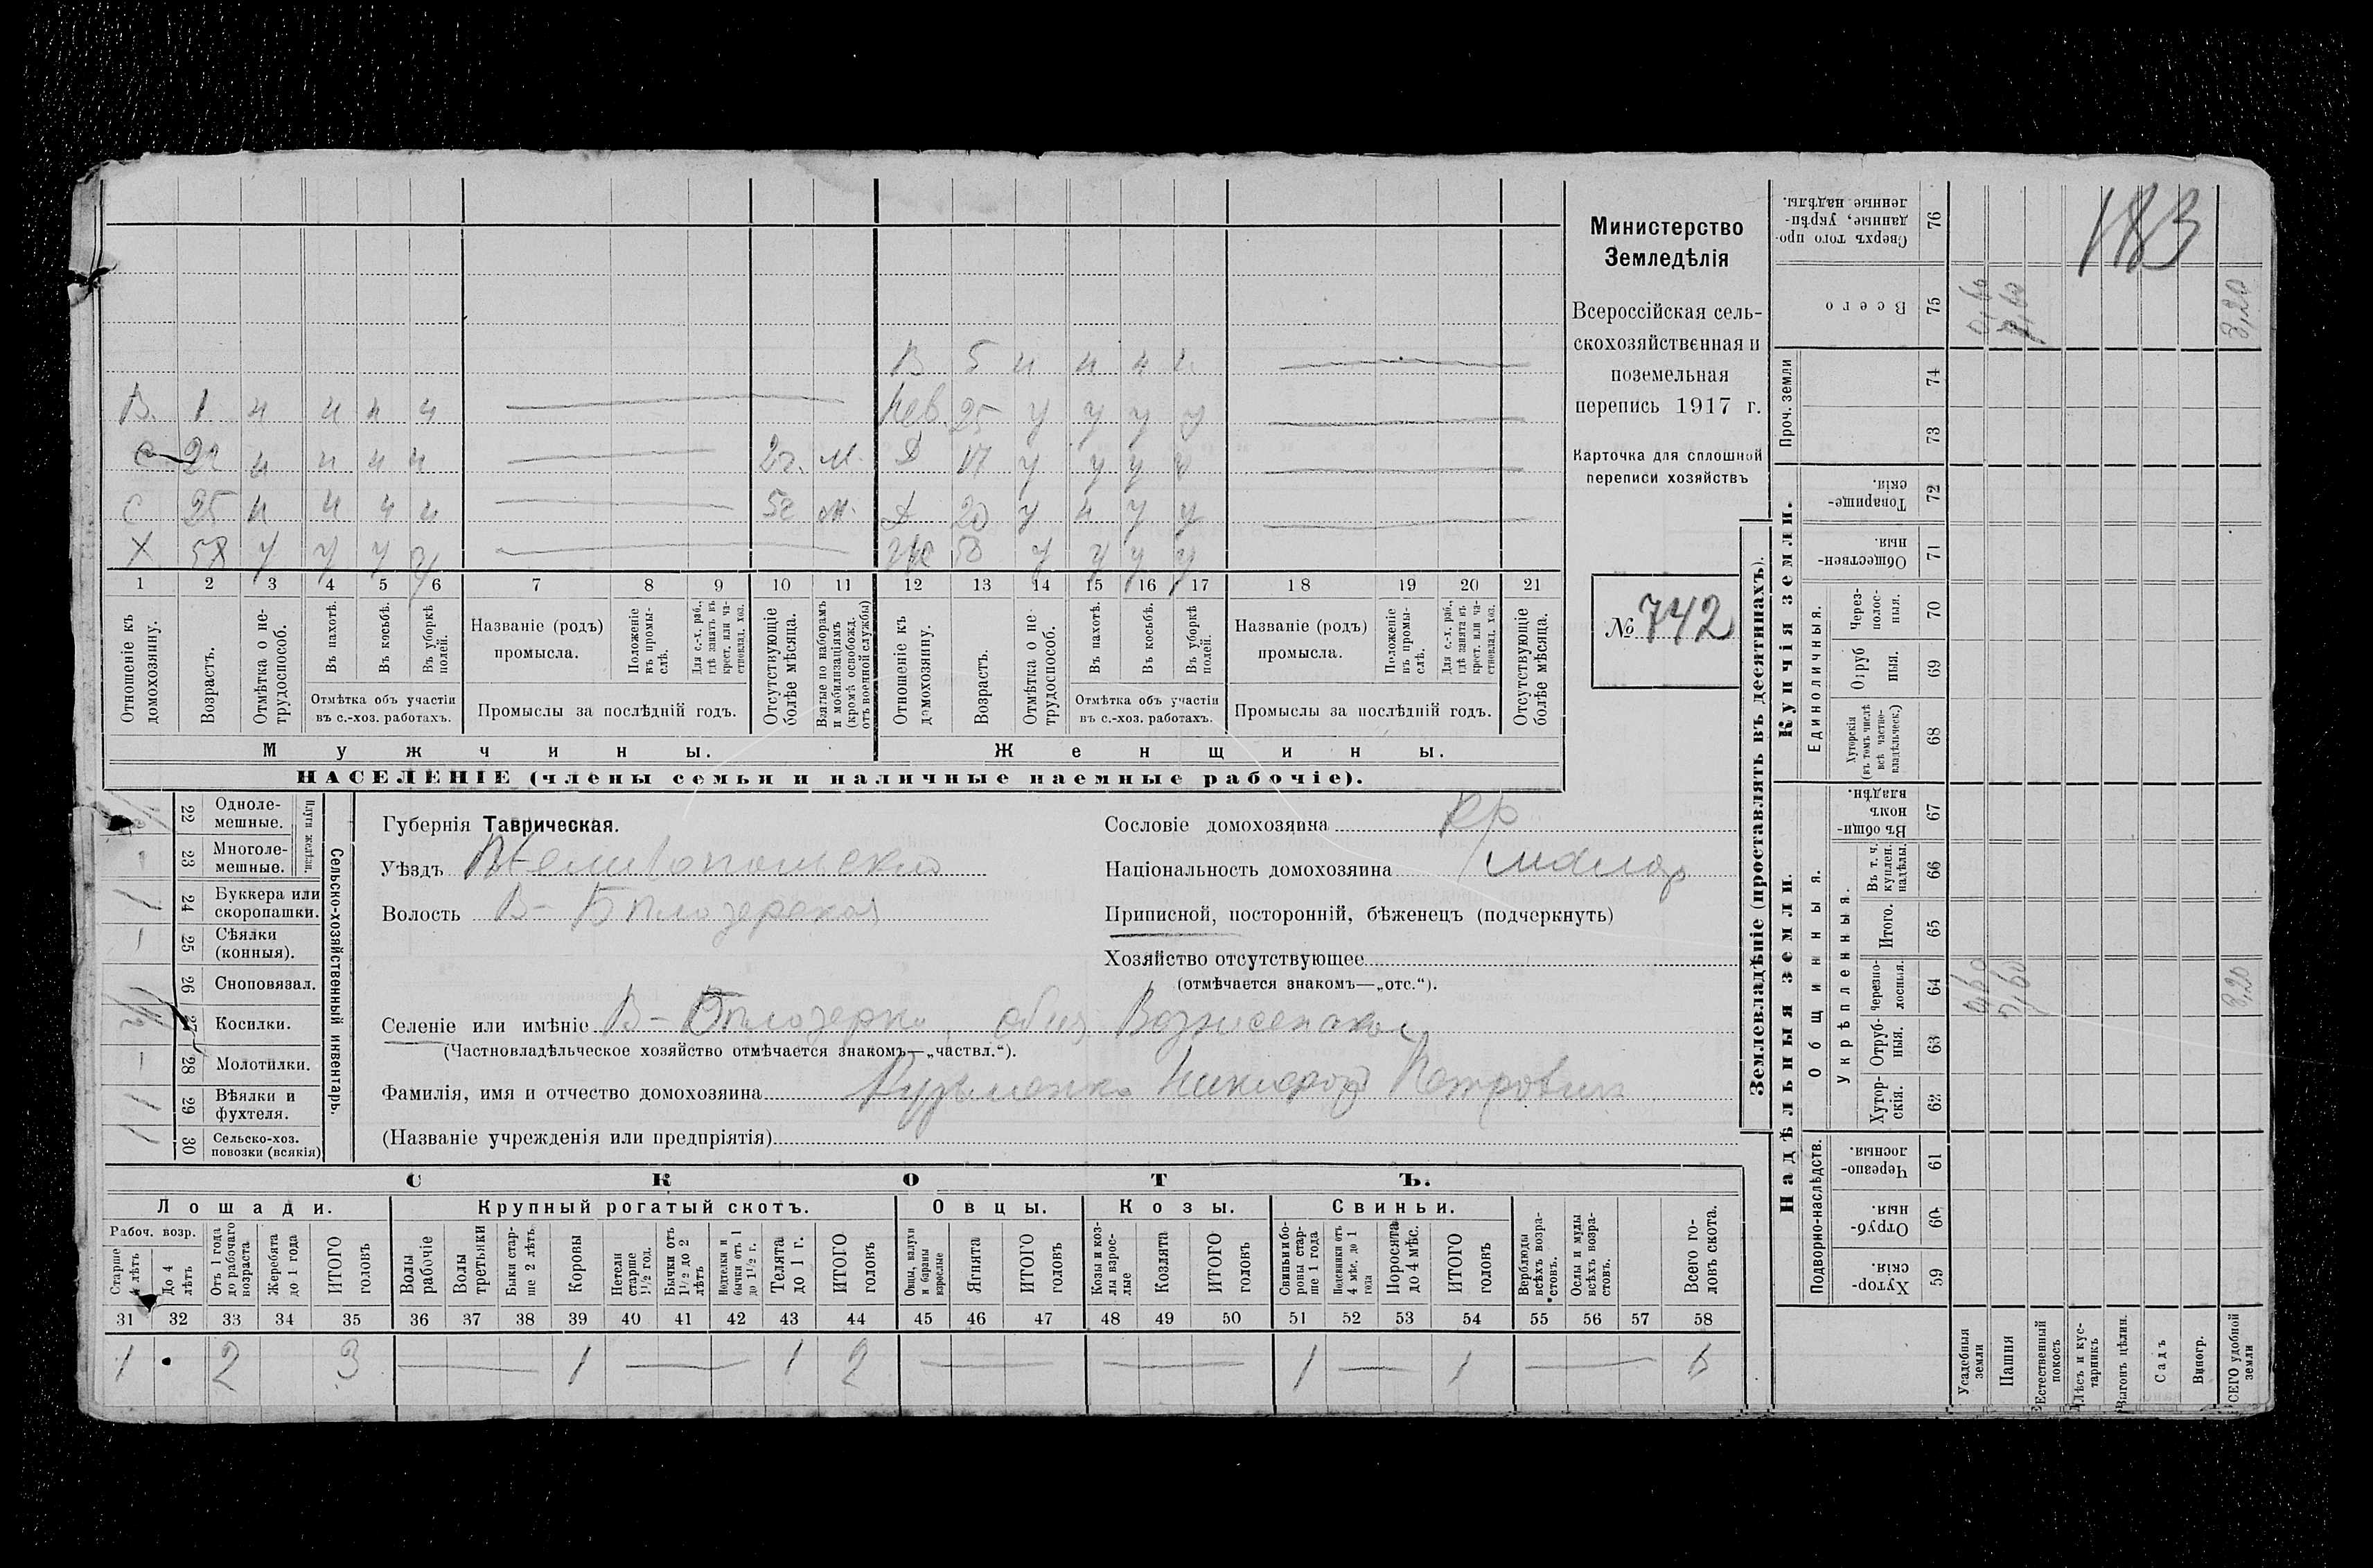 183
Министерство
Земледѣлія
Всероссійская сель-
скохозяйственная и
поземельная
перепись 1917 г.
Карточка для сплошной
переписи хозяйствъ
№ 742
В 5 н н н н
В. 1 н н н н
Нев. 25 у у у у
С 22 н н н н 2г. м.
Д 17 у у у у
С 25 н н н н 5г. м.
Д 20 у н у у
Х 58 у у у у
Же 58 у у у у
1 2 3 4 5 6 7 8 9 10 11 12 13 14 15 16 17 18 19 20 21
Отношеніе къ домохозяину.
Возрастъ.
Отмѣтка о не-трудоспособ.
Въ пахотѣ.
Въ косьбѣ.
Въ уборкѣ полей.
Отмѣтка объ участіи въ с.-хоз. работахъ.
Названіе (родъ) промысла.
Положеніе въ промы-слѣ.
Для с.-х. раб., гдѣ занятъ въ крест. или ча-стновлад. хоз.
Промыслы за послѣдній годъ.
Отсутствующіе болѣе мѣсяца.
Взятые по наборамъ и мобилизаціямъ (кромѣ освобожд. отъ военной службы)
Отношеніе къ домохозяину.
Возрастъ.
Отмѣтка о не-трудоспособ.
Въ пахотѣ.
Въ косьбѣ.
Въ уборкѣ полей.
Отмѣтка объ участіи въ с.-хоз. работахъ.
Названіе (родъ) промысла.
Положеніе въ промы-слѣ.
Для с.-х. раб., гдѣ занята въ крест. или ча-стновлад. хоз.
Промыслы за послѣдній годъ.
Отсутствующіе болѣе мѣсяца.
Мужчины. Женщины.
НАСЕЛЕНІЕ (члены семьи и наличные наемные рабочіе).
Сельско-хозяйственный инвентарь.
Плуги желѣзн.
22 Одноле-мешные.
23 Многоле-мешные.
24 Буккера или скоропашки. 1
25 Сѣялки (конныя).
26 Сноповязал.
27 Косилки.
28 Молотилки.
29 Вѣялки и фухтеля. 1
30 Сельско-хоз. повозки (всякія) 1
Губернія Таврическая.
Уѣздъ Мелитопольскій
Волость В-Бѣлозерская
Сословіе домохозяина кр
Національность домохозяина малор
Приписной, посторонній, бѣженецъ (подчеркнуть)
Хозяйство отсутствующее
(отмѣчается знакомъ—„отс.“).
Селеніе или имѣніе В-Бѣлозерка, общ Вознесенская
(Частновладѣльческое хозяйство отмѣчается знакомъ—„частвл.“).
Фамилія, имя и отчество домохозяина Кузьменко Никифор Петрович
(Названіе учрежденія или предпріятія)
СКОТЪ.
Лошади. Крупный рогатый скотъ. Овцы. Козы. Свиньи.
Рабоч. возр.
Старше 4 лѣтъ
До 4 лѣтъ
Отъ 1 года до рабочаго возраста
Жеребята до 1 года
ИТОГО головъ
Волы рабочіе
Волы третьяки
Быки стар-ше 2 лѣтъ
Коровы
Нетели старше 1½ год.
Бычки отъ 1½ до 2 лѣтъ
Подтелки и бычки отъ 1 до 1½ г.
Телята до 1 г.
ИТОГО головъ
Овцы, валухи и бараны взрослые
Ягнята
ИТОГО головъ
Козы и коз-лы взрос-лые
Козлята
ИТОГО головъ
Свиньи и бо-ровы стар-ше 1 года
Подсвинки отъ 4 мѣс. до 1 года
Поросята до 4 мѣс.
ИТОГО головъ
Верблюды всѣхъ возра-стовъ.
Ослы и мулы всѣхъ возра-стовъ.
Всего го-ловъ скота.
31 32 33 34 35 36 37 38 39 40 41 42 43 44 45 46 47 48 49 50 51 52 53 54 55 56 57 58
1 2 3 1 1 2 1 1 6
Землевладѣніе (проставлять въ десятинахъ).
Купчія земли.
Надѣльныя земли.
Сверхъ того про-данные, укрѣп-ленные надѣлы. 76
Всего 75 0,60 2,60 3,20
Проч. земли 74 73
Товарище-скія. 72
Обществен-ныя. 71
Единоличныя.
Через-полос-ныя. 70
Отруб ныя. 69
Хуторскія (въ томъ числѣ всѣ частно-владѣльческ.) 68
Общинныя.
Въ общи-номъ владѣн. 67
Укрѣпленныя.
Въ т. ч. куплен. надѣлы. 66
Итого. 65
Черезпо-лосныя. 64 0,60 2,60 3,20
Отруб-ныя. 63
Хутор-скія. 62
Подворно-наслѣдств.
Черезпо-лосныя. 61
Отруб-ныя. 60
Хутор-скія. 59
Усадебныя земли
Пашня
Естественный покосъ
Лѣсъ и кус-тарникъ
Выгонъ цѣлин.
Садъ
Виногр.
ВСЕГО удобной земли